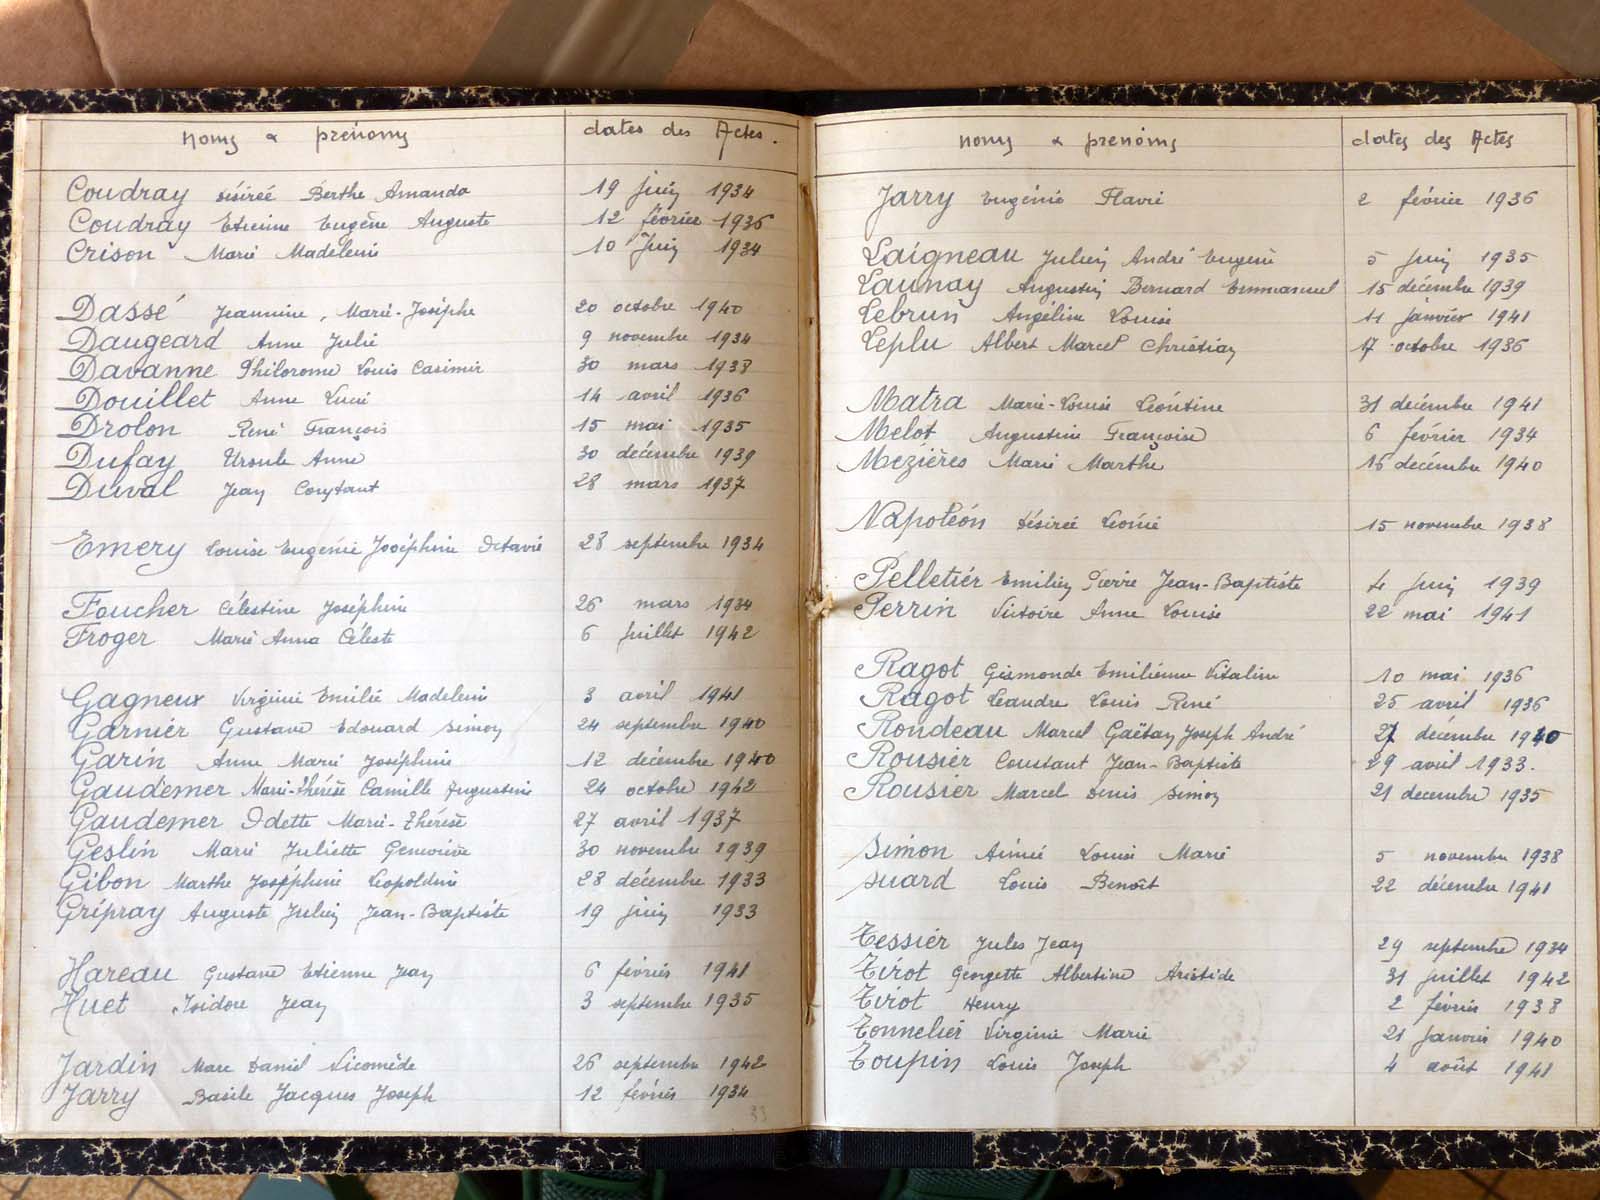 noms & prénoms dates des Actes.
Coudray Désirée Berthe Amanda 19 juin 1934
Coudray Etienne Eugène Auguste 12 février 1936
Crison Marie Madeleine 10 Juin 1934
Dassé Jeannine, Marie-Josèphe 20 octobre 1940
Daugeard Anne Julie 9 novembre 1934
Davanne Philorome Louis Casimir 30 mars 1938
Douillet Anne Lucie 14 avril 1936
Drolon René François 15 mai 1935
Dufay Ursule Anne 30 décembre 1939
Duval Jean Constant 28 mars 1937
Emery Louise Eugénie Joséphine Octavie 28 septembre 1934
Foucher Célestine Joséphine 26 mars 1934
Froger Marie Anna Céleste 6 Juillet 1942
Gagneux Virginie Emilie Madeleine 3 avril 1941
Garnier Gustave Edouard Simon 24 septembre 1940
Garin Anne Marie Joséphine 12 décembre 1940
Gaudemer Marie-Thérèse Camille Augustine 24 octobre 1942
Gaudemer Odette Marie-Thérèse 27 avril 1937
Geslin Marie Juliette Geneviève 30 novembre 1939
Gibon Marthe Joséphine Léopoldine 28 décembre 1933
Gripray Auguste Julien Jean-Baptiste 19 juin 1933
Hareau Gustave Etienne Jean 6 février 1941
Huet Isidore Jean 3 septembre 1935
Jardin Marc Daniel Nicomède 26 septembre 1942
Jarry Basile Jacques Joseph 12 février 1934
33
noms & prénoms dates des Actes
Jarry Eugénie Flavie 2 février 1936
Laigneau Julien André Eugène 5 Juin 1935
Launay Augustin Bernard Emmanuel 15 décembre 1939
Lebrun Angéline Louise 11 janvier 1941
Leplu Albert Marcel Christian 17 octobre 1936
Matra Marie-Louise Léontine 31 décembre 1941
Melot Augustine Françoise 6 février 1934
Mezières Marie Marthe 16 décembre 1940
Napoléon Désirée Léonie 15 novembre 1938
Pelletier Emilien Pierre Jean-Baptiste 4 Juin 1939
Perrin Victoire Anne Louise 22 mai 1941
Ragot Gismonde Emilienne Vitaline 10 mai 1936
Ragot Léandre Louis René 25 avril 1936
Rondeau Marcel Gaëtan Joseph André 27 décembre 1940
Rousier Constant Jean-Baptiste 29 avril 1933.
Rousier Marcel Denis Simon 21 décembre 1935
Simon Aimée Louise Marie 5 novembre 1938
Suard Louis Benoît 22 décembre 1941
Tessier Jules Jean 29 septembre 1934
Tirot Georgette Albertine Aristide 31 juillet 1942
Tirot Henry 2 février 1938
Tonnelier Virginie Marie 21 janvier 1940
Toupin Louis Joseph 4 août 1941